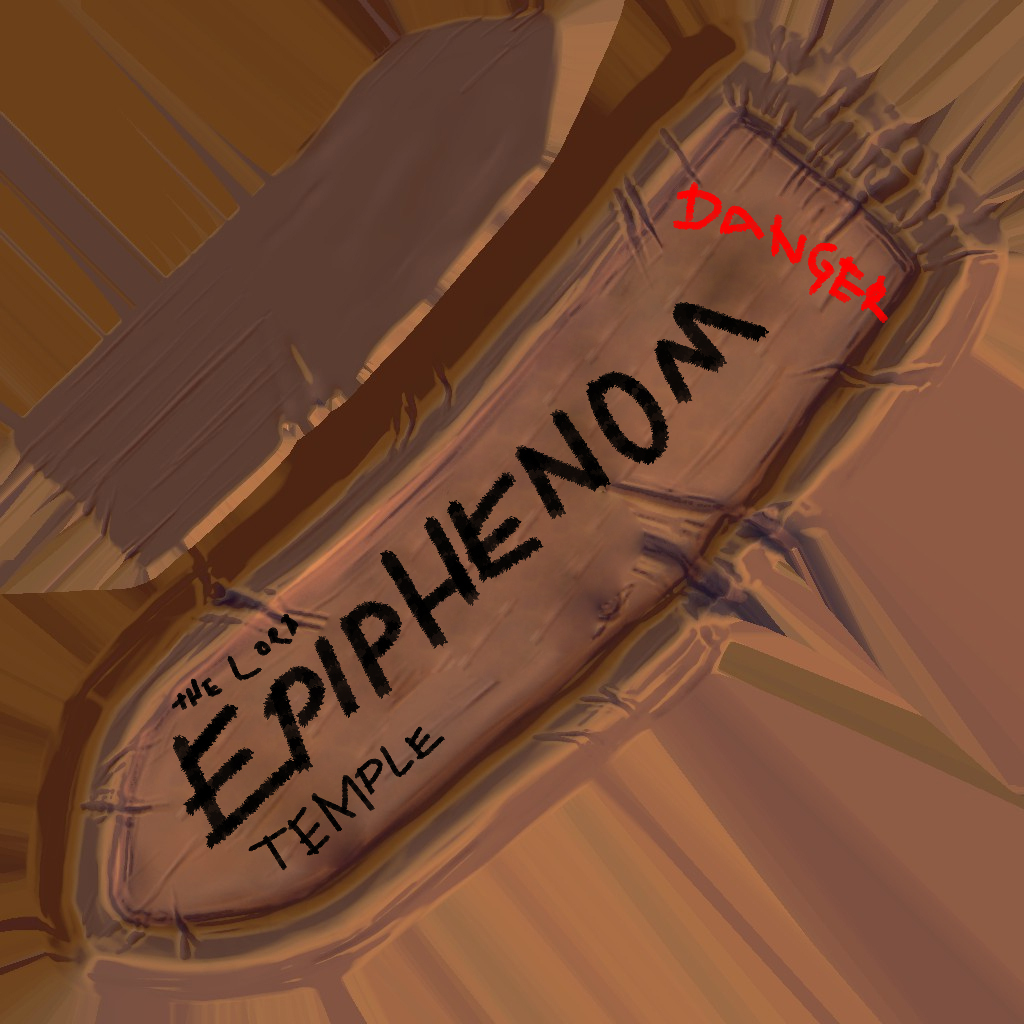 DANGER
THE LORD
EPIPHENOM
TEMPLE